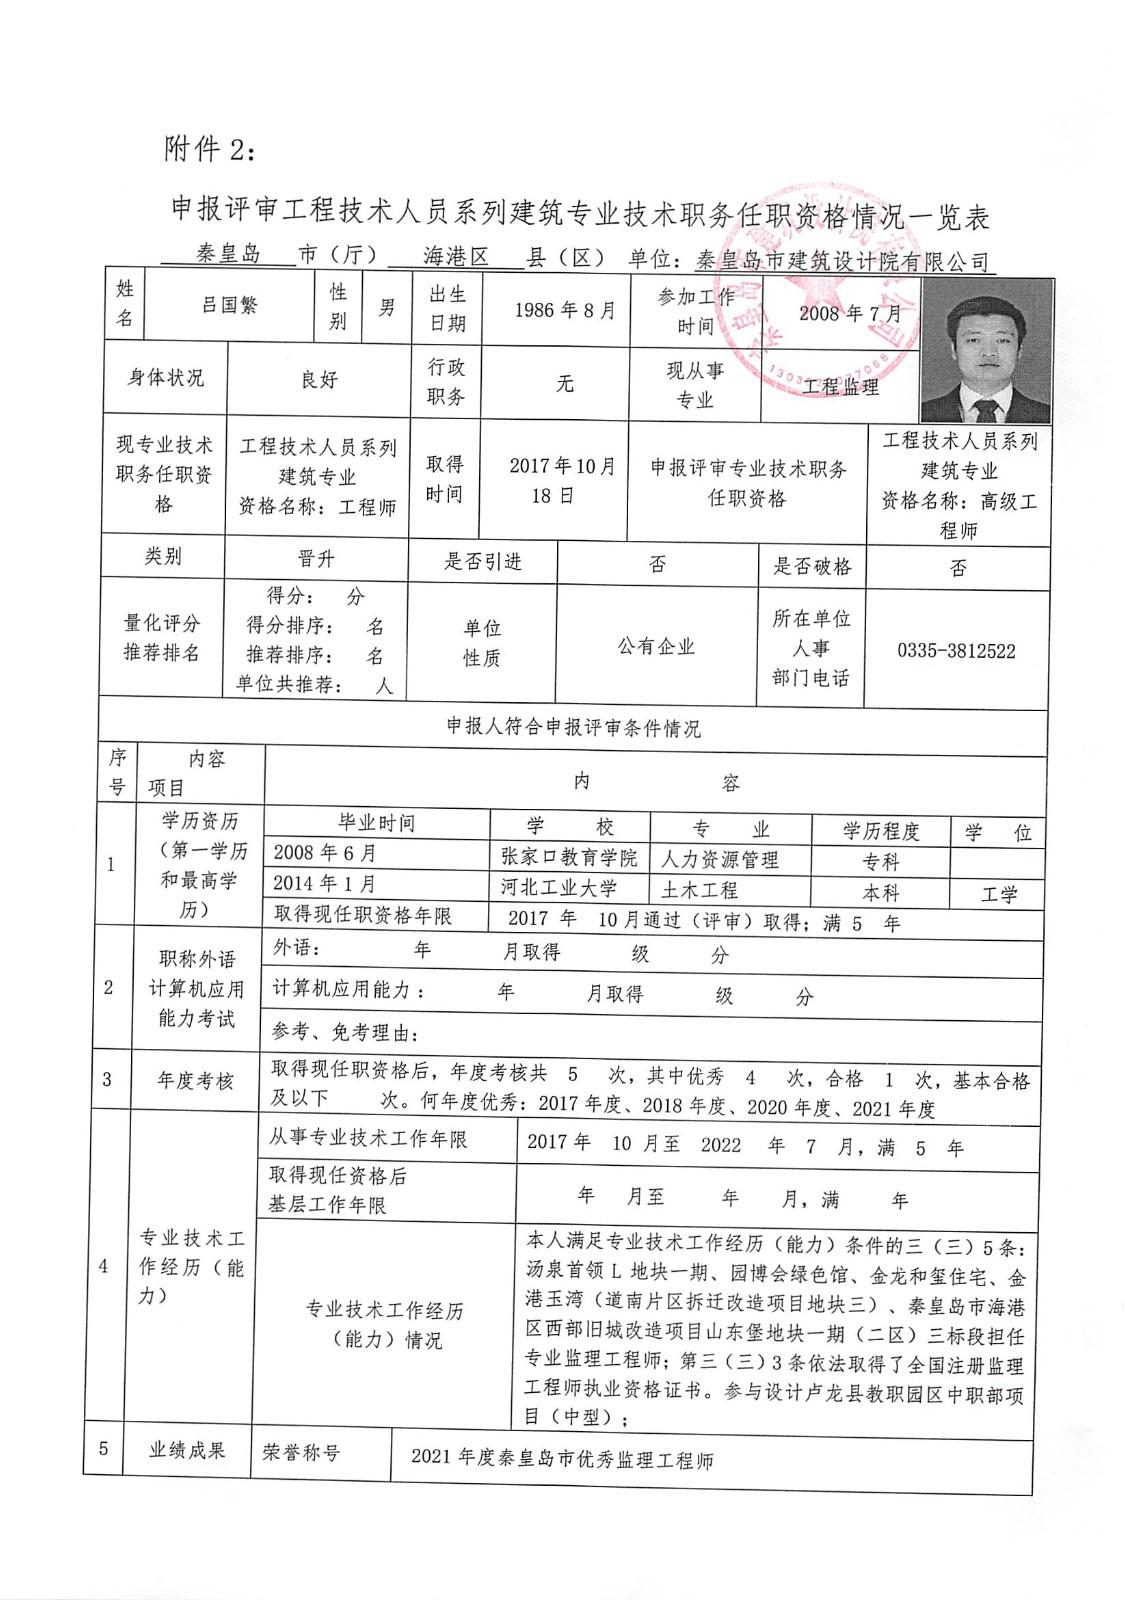 附件2：
申报评审工程技术人员系列建筑专业技术职务任职资格情况一览表
秦皇岛 市（厅） 海港区 县（区） 单位：秦皇岛市建筑设计院有限公司
姓名 吕国繁 性别 男 出生日期 1986年8月 参加工作时间 2008年7月
身体状况 良好 行政职务 无 现从事专业 工程监理
现专业技术职务任职资格 工程技术人员系列建筑专业 资格名称：工程师 取得时间 2017年10月18日 申报评审专业技术职务任职资格 工程技术人员系列建筑专业 资格名称：高级工程师
类别 晋升 是否引进 否 是否破格 否
量化评分推荐排名
得分： 分
得分排序： 名
推荐排序： 名
单位共推荐： 人
单位性质 公有企业 所在单位人事部门电话 0335-3812522
申报人符合申报评审条件情况
序号 内容 项目 内 容
1 学历资历（第一学历和最高学历）
毕业时间 学 校 专 业 学历程度 学 位
2008年6月 张家口教育学院 人力资源管理 专科
2014年1月 河北工业大学 土木工程 本科 工学
取得现任职资格年限 2017 年 10月通过（评审）取得；满 5 年
2 职称外语计算机应用能力考试
外语： 年 月取得 级 分
计算机应用能力： 年 月取得 级 分
参考、免考理由：
3 年度考核
取得现任职资格后，年度考核共 5 次，其中优秀 4 次，合格 1 次，基本合格
及以下 次。何年度优秀：2017年度、2018年度、2020年度、2021年度
4 专业技术工作经历（能力）
从事专业技术工作年限 2017年 10 月至 2022 年 7 月，满 5 年
取得现任资格后基层工作年限 年 月至 年 月，满 年
专业技术工作经历（能力）情况
本人满足专业技术工作经历（能力）条件的三（三）5条：
汤泉首领L地块一期、园博会绿色馆、金龙和玺住宅、金
港玉湾（道南片区拆迁改造项目地块三）、秦皇岛市海港
区西部旧城改造项目山东堡地块一期（二区）三标段担任
专业监理工程师；第三（三）3条依法取得了全国注册监理
工程师执业资格证书。参与设计卢龙县教职园区中职部项
目（中型）；
5 业绩成果 荣誉称号 2021年度秦皇岛市优秀监理工程师